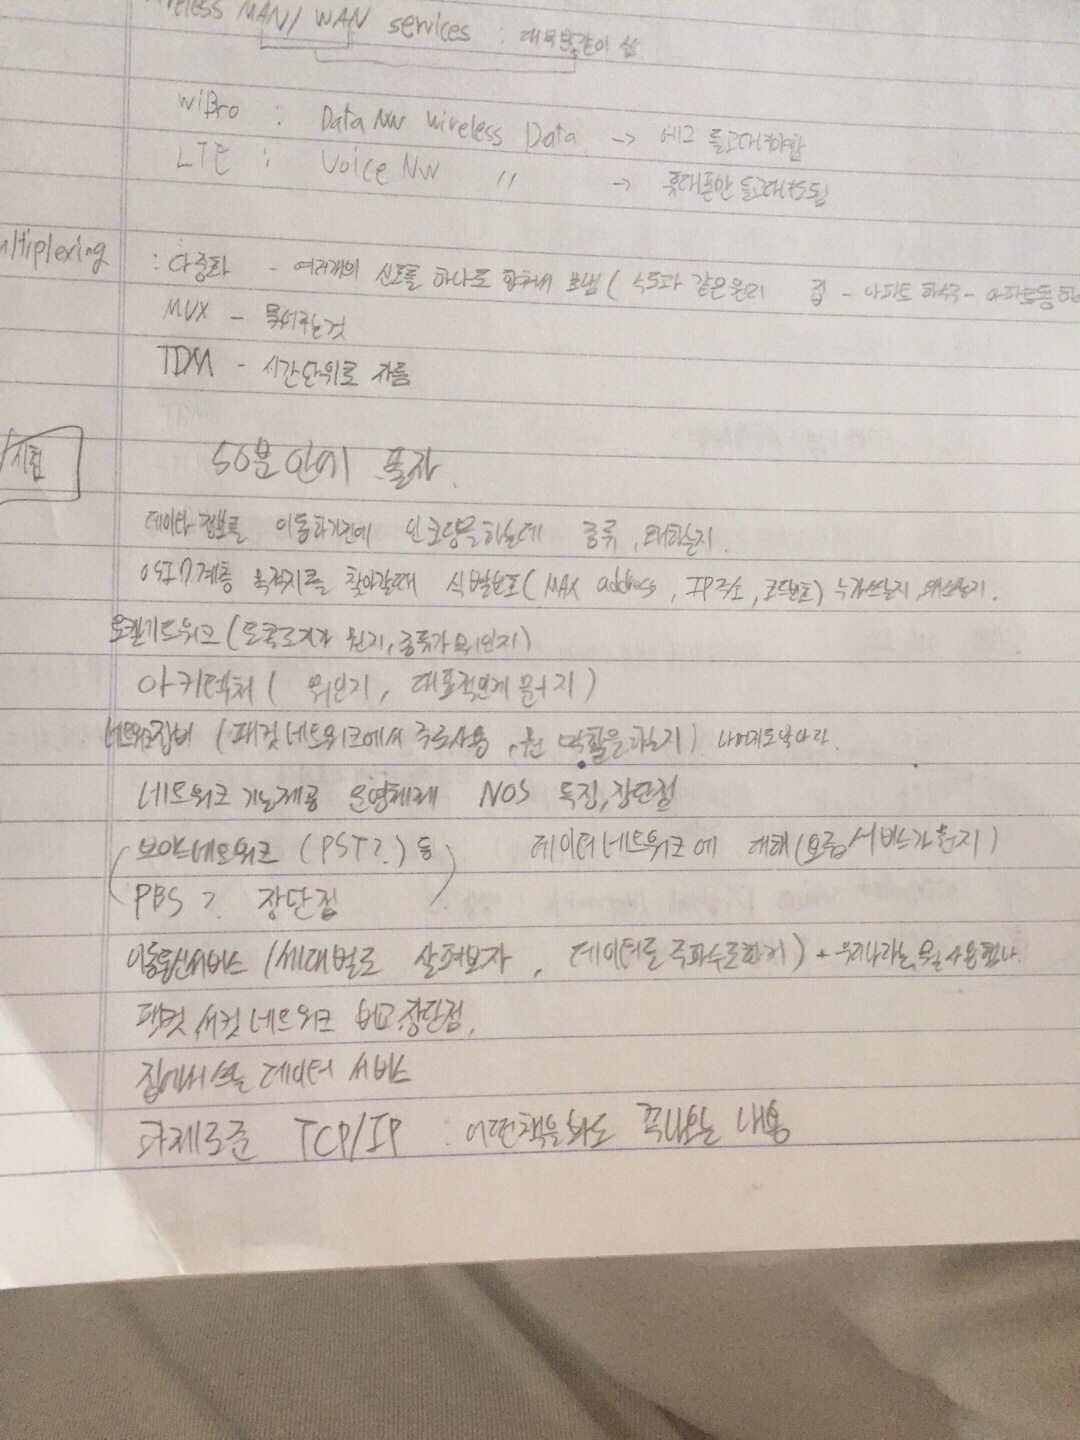 reless MAN/ WAN services : 대부분같이 씀
WiBro : Data NW Wireless Data → 에그 들고다녀야함
LTE : Voice NW 〃 → 휴대폰만 들고다녀도됨
ultiplexing : 다중화 - 여러개의 신호를 하나로 합쳐서 보냄 ( 수도과 같은원리 집 - 아파트 하수구 - 아파트동 하
MUX - 묶어주는것
TDM - 시간단위로 자름
시험 50분안에 풀자.
데이타 정보를 이동하기전에 인코딩을하는데 종류, 왜하는지.
OSI 7계층 목적지를 찾아갈때 식별번호( MAX address, IP주소, 포트번호) 누가쓰는지, 왜쓰는지.
로컬네트워크 (토폴로지가 뭔지, 종류가 뭐인지)
아키텍처 ( 뭐인지, 대표적인게 뭔지)
네트워크장비 (패킷네트워크에서 주로사용, 뭔 역할을하는지) 나머지도알아라.
네트워크 기능제공 운영체제 NOS 특징, 장단점
보이스네트워크 (PST?.) 등 데이터네트워크에 대해 (요즘 서비스가 뭔지)
PBS ? 장단점
이동통신서비스 (세대별로 살펴보자, 데이터를 주파수로한거) + 우리나라는 뭘 사용했나.
패킷, 서킷 네트워크 비교, 장단점,
집에서쓰는 데이터 서비스
과제로준 TCP/IP : 어떤책을봐도 꼭나오는 내용